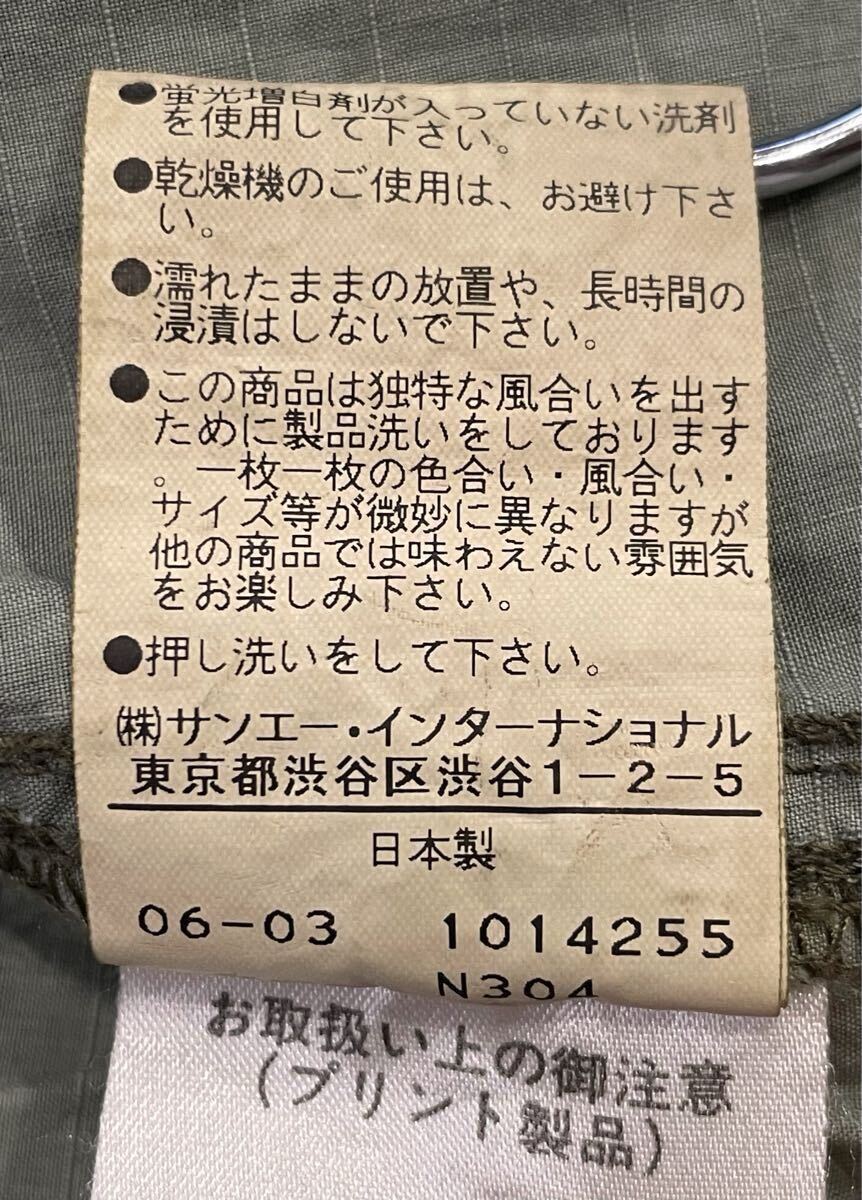 ●蛍光増白剤が入っていない洗剤
を使用して下さい。
●乾燥機のご使用は、お避け下さ
い。
●濡れたままの放置や、長時間の
浸漬はしないで下さい。
●この商品は独特な風合いを出す
ために製品洗いをしております
。一枚一枚の色合い・風合い・
サイズ等が微妙に異なりますが
他の商品では味わえない雰囲気
をお楽しみ下さい。
●押し洗いをして下さい。
㈱サンエー・インターナショナル
東京都渋谷区渋谷1-2-5
日本製
06-03 1014255
N304
お取扱い上の御注意
(プリント製品)